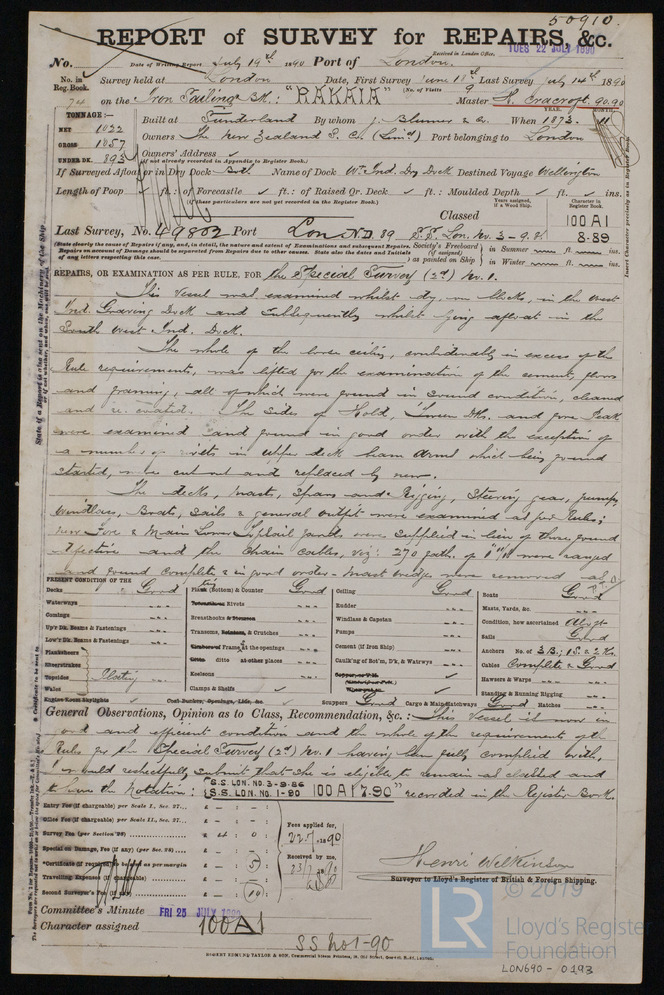 50910.
REPORT of SURVEY for REPAIRS, &c.
Received in London Office, TUES 22 JULY 1890
No. Date of Writing Report July 19th 1890 Port of London.
No. in Reg. Book. Survey held at London Date, First Survey June 18th Last Survey July 14th 1890
(No. of Visits 9
74 on the Iron Sailing Bk.: "RAKAIA" Master H. Cracroft. 90.90
TONNAGE:—
NET 1022
GROSS 1057
UNDER DK. 893
Built at Sunderland By whom J. Blumer & Co. When 1873. 11
Owners The New Zealand S. Co. (Limd) Port belonging to London
Owners' Address
(if not already recorded in Appendix to Register Book.)
If Surveyed Afloat or in Dry Dock Both. Name of Dock W. Ind. Dry Dock Destined Voyage Wellington
Length of Poop ft.: of Forecastle ft.: of Raised Qr. Deck ft.: Moulded Depth ft. ins.
(if these particulars are not yet recorded in the Register Book.)
Years assigned, if a Wood Ship.
Character in Register Book.
Classed 100 A1
8-89
Last Survey, No. 49802 Port Lon ND. 89 S.S. Lon. No. 3-9.86
(State clearly the cause of Repairs if any, and, in detail, the nature and extent of Examinations and subsequent Repairs.
Repairs on account of Damage should be separated from Repairs due to other causes. State also the dates and Initials of any letters respecting this case.
Society's Freeboard (if assigned) as painted on Ship } in Summer ft. ins.
in Winter ft. ins.
REPAIRS, OR EXAMINATION AS PER RULE, FOR the Special Survey (2nd) No. 1.
This vessel was examined whilst dry, on blocks, in the West
Ind. Graving Dock and subsequently whilst lying afloat in the
South West Ind. Dock.
The whole of the lower ceiling, considerably in excess of the
Rule requirements, was lifted for the examination of the cement, floors
and framing, all of which were found in sound condition, cleaned
and re-coated. The sides of Hold, 'tween Dks. and fore Peak
were examined and found in good order with the exception of
a number of rivets in upper deck beam arms which being found
started, were cut out and replaced by new.
The decks, masts, spars and Rigging, Steering gear, pumps,
windlass, Boats, sails & general outfit were examined as per Rule;
new Fore & Main Lower Topsail yards were supplied in lieu of those found
defective and the chain cables, viz: 270 fath. of were ranged
and found complete & in good order. Mast wedges were removed
PRESENT CONDITION OF THE
Decks Good
Waterways
Comings
Up'r Dk. Beams & Fastenings
Low'r Dk. Beams & Fastenings
Planksheers
Sheerstrakes
Topsides Plating
Wales
Engine Room Skylights
Plating (Bottom) & Counter Good
Treenails or Rivets
Breasthooks & Stemson
Transoms, Pointers, & Crutches
Timbers of Frame at the openings
Ditto ditto at other places
Keelsons
Clamps & Shelfs
Coal-Bunker, Openings, Lids, &c.
Ceiling Good
Rudder
Windlass & Capstan
Pumps
Cement (if Iron Ship)
Caulk'ng of Bot'm, D'ks, & Watrwys
Scuppers Good Cargo & Main Hatchways Good Hatches
Boats Good
Masts, Yards, &c.
Condition, how ascertained Aloft
Sails Good
Anchors No. of 3 B; 1 S. & 2 K.
Cables Complete & Good
Hawsers & Warps
Standing & Running Rigging
General Observations, Opinion as to Class, Recommendation, &c.: This vessel is now in
good and efficient condition and the whole of the requirements of the
Rules for the Special Survey (2nd) No. 1 having been fully complied with,
I would respectfully submit that she is eligible to remain as classed and
to have the Notation: "S.S. LON. NO. 3-9-86
S.S. LON. NO. 1-90 100 A1 7.90" recorded in the Register Book.
Entry Fee (if chargeable) per Scale I., Sec. 27...
Office Fee (if chargeable) per Scale II., Sec. 27...
Survey Fee (per Section 28) £ 4 : 0 :
Special on Damage, Fee (if any) (per Sec. 28)
*Certificate (if required) as per margin 5
Travelling Expenses (if chargeable)
Second Surveyor's Fee (if any)
Fees applied for, 22.7.1890
Received by me,
Henri Wilkinson
Surveyor to Lloyd's Register of British & Foreign Shipping.
Committee's Minute FRI 25 JULY 1890
Character assigned 100 A1
SS No 1-90
© 2019
LR
Lloyd's Register
Foundation
LON690-0193